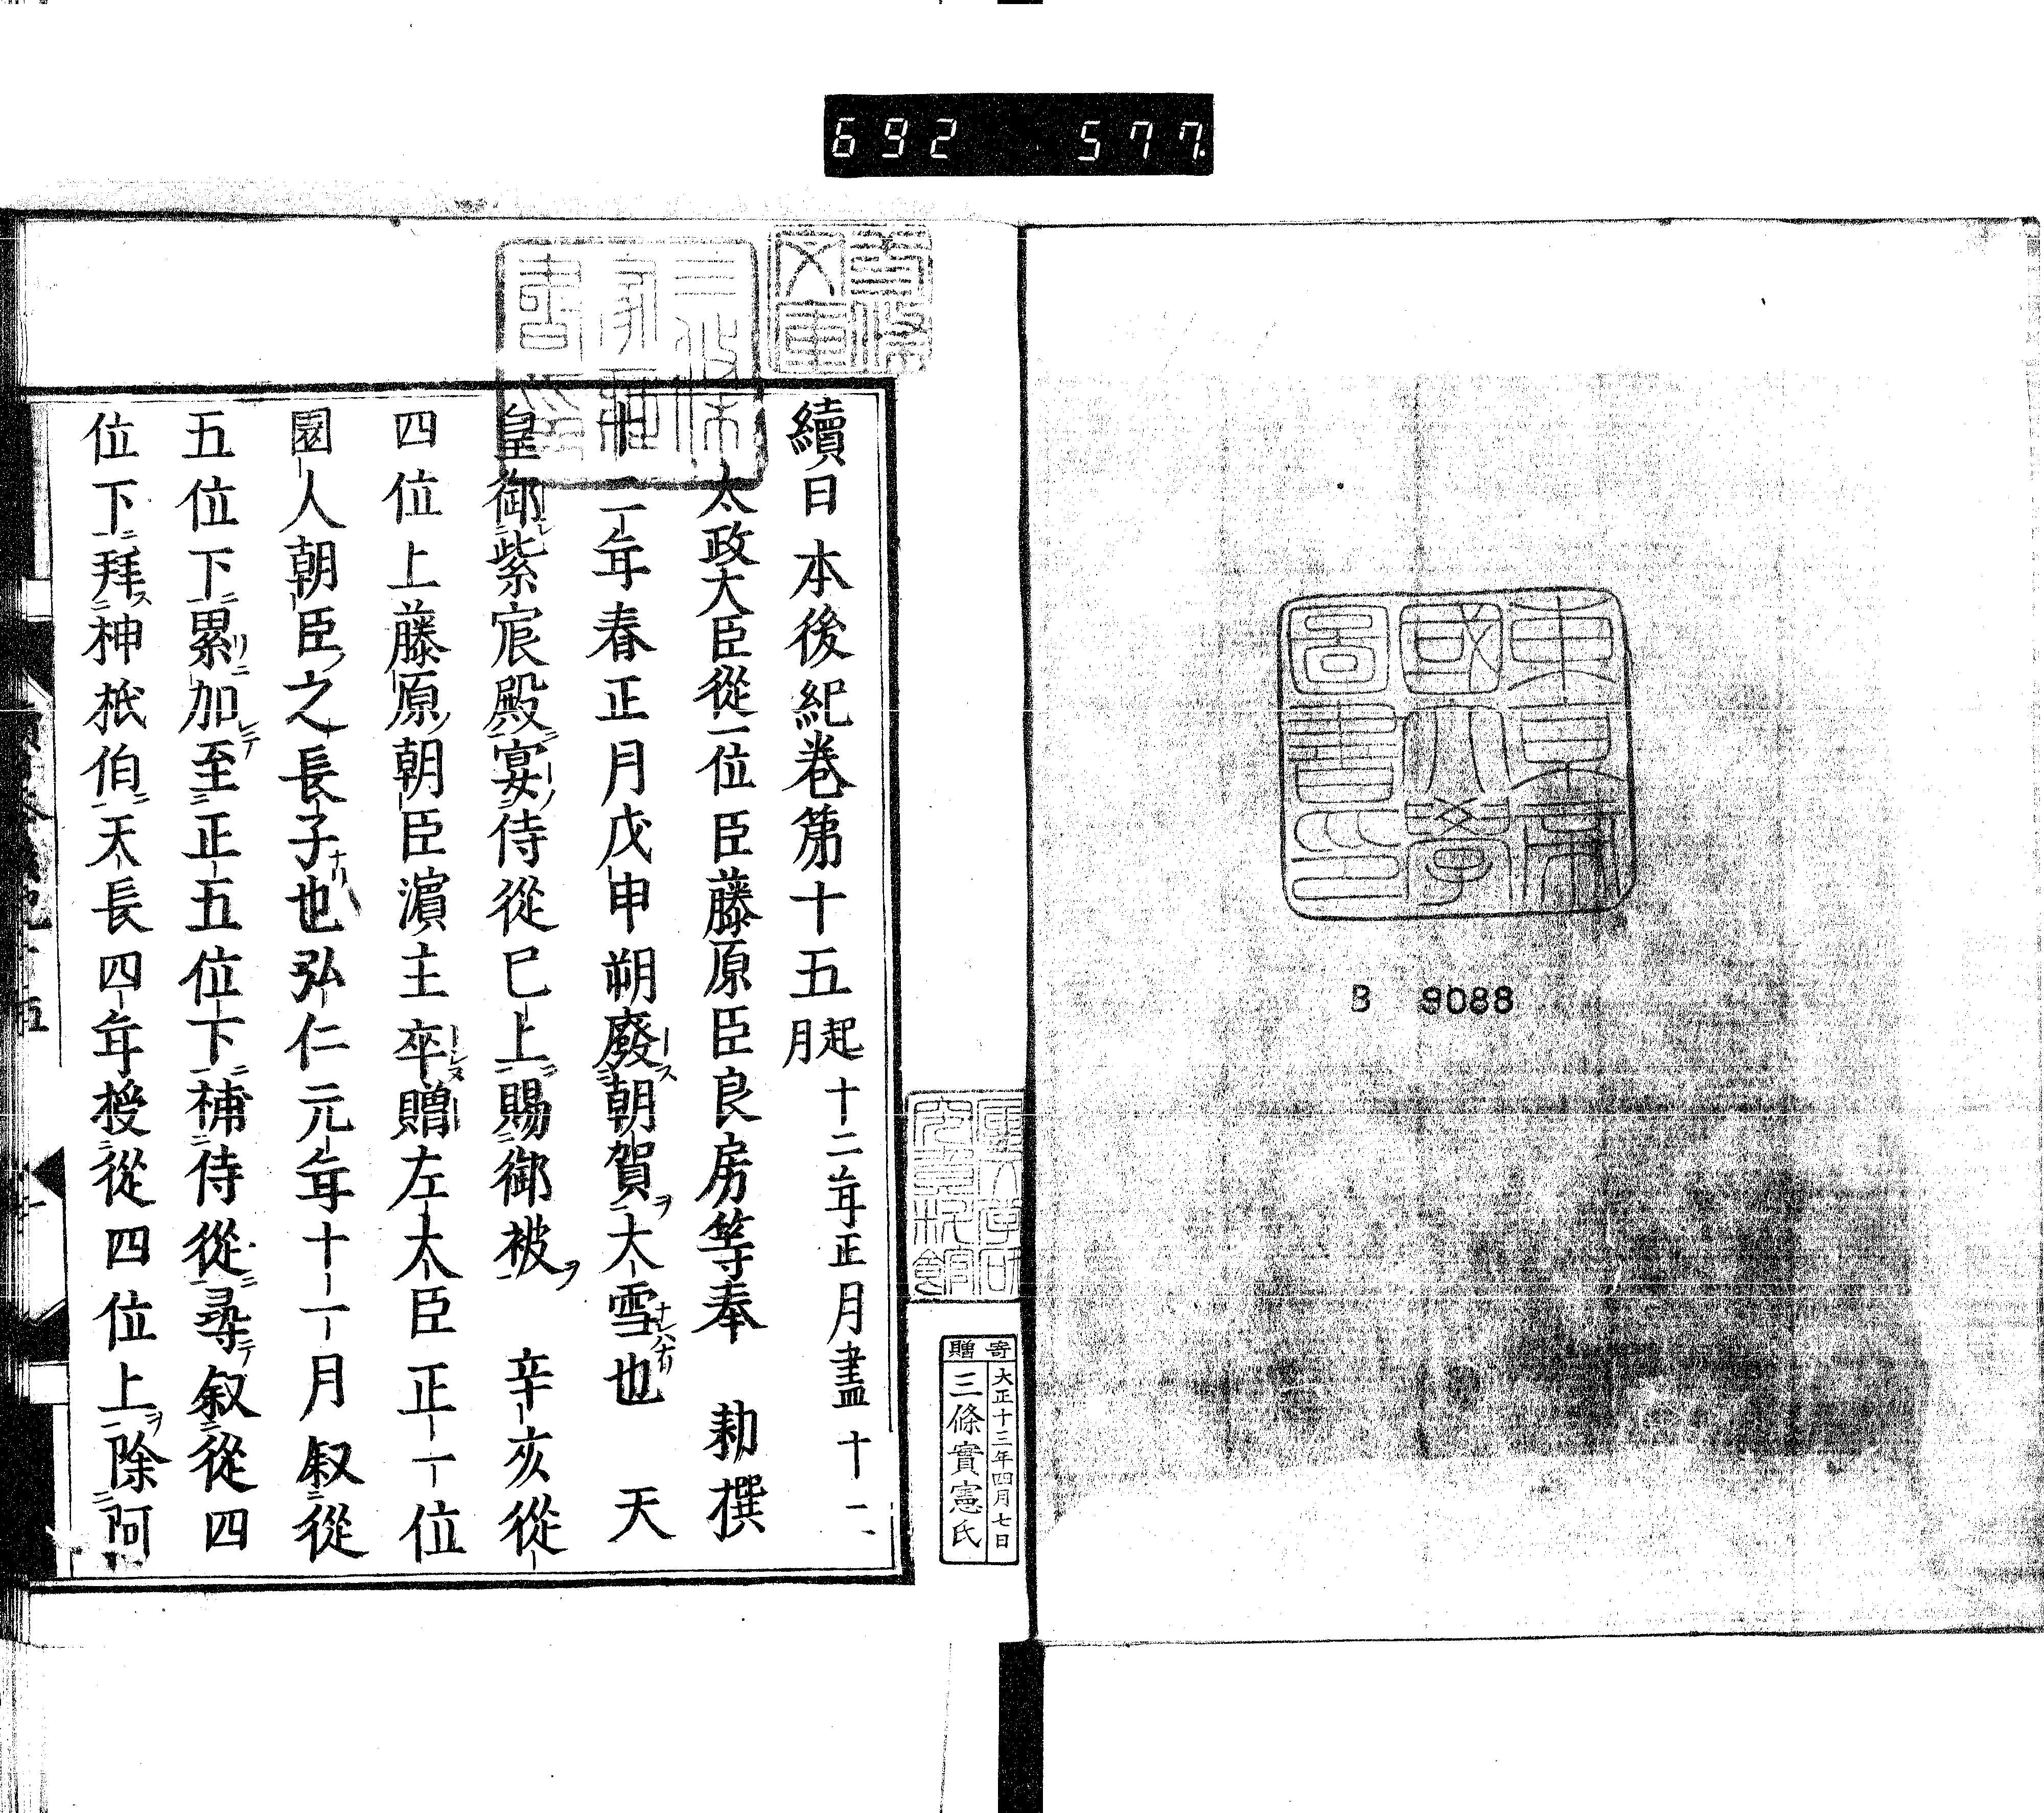 692 577
東京帝
國大學
圖書之印
B 9088
寄贈
大正十三年四月七日
三條實憲氏
續日本後紀卷第十五起十二年正月盡十二月
太政大臣從一位臣藤原臣良房等奉 勅撰
十二年春正月戊申朔廢朝賀大雪也 天
皇御紫宸殿宴侍從已上賜御被 辛亥從
四位上藤原朝臣濱主卒贈左大臣正一位
園人朝臣之長子也弘仁元年十一月叙從
五位下累加至正五位下補侍從尋叙從四
位下拜神祇伯天長四年授從四位上除阿